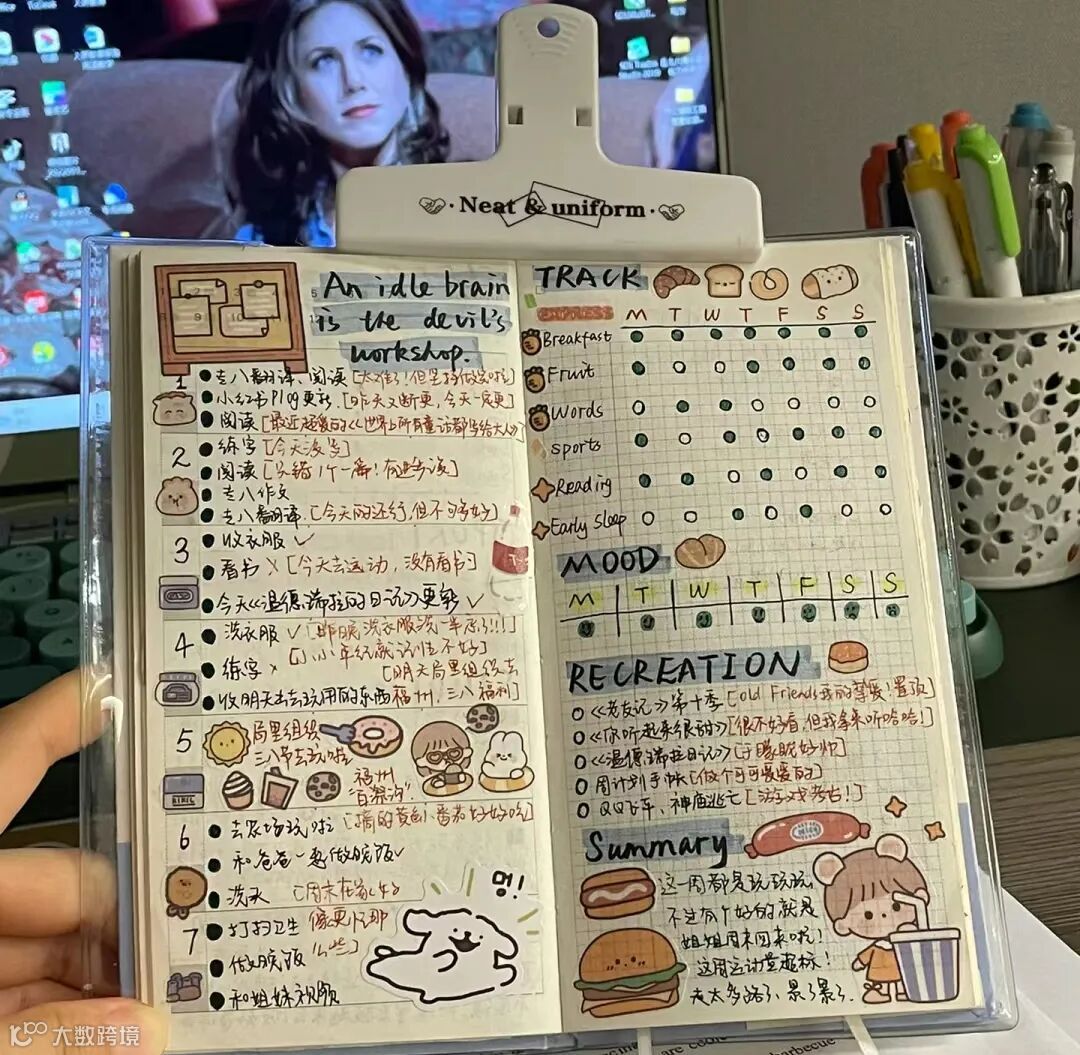 Neat & uniform
An idle brain
is the devil's
workshop.
1
专八翻译、阅读[太难了!但坚持做完啦]
小红书Plog更新.[昨天又断更,今天一定更]
阅读[最近超爱的《世界上所有童话都写给大人》]
2
练字[今天没写]
阅读[只错1个一篇!有进步诶]
专八作文
专八翻译.[今天的还行,但不够好]
3
收衣服 ✓
看书 × [今天去运动,没有看书]
今天《温德瑞拉的日记》更新 ✓
4
洗衣服 ✓ [昨晚洗衣服洗一半忘了!!!]
[小小年纪就记性不好]
练字 ×
[明天局里组织去
收明天去玩用的东西 福州,三八福利]
5
局里组织
三八节去玩啦
福州
6
去农场玩啦 [摘的黄色小番茄好好吃]
和爸爸一起做晚饭✓
洗头
7
打扫卫生
做晚饭
和姐妹视频
멍!
TRACK
EXPRESS
M T W T F S S
Breakfast
Fruit
Words
sports
Reading
Early sleep
MOOD
M T W T F S S
RECREATION
《老友记》第十季 [Old Friends我的挚爱!置顶]
《你听起来很甜》[很不好看,但我拿来听哈哈!]
《温德瑞拉日记》[于朦胧好帅]
周计划手帐[做个可可爱爱的]
QQ飞车、神庙逃亡[游戏考古!]
Summary
这一周都是玩玩玩
不过有个好的就是
姐姐周末回来啦!
这周运动量超标!
走太多路了,累了累了.
大数跨境